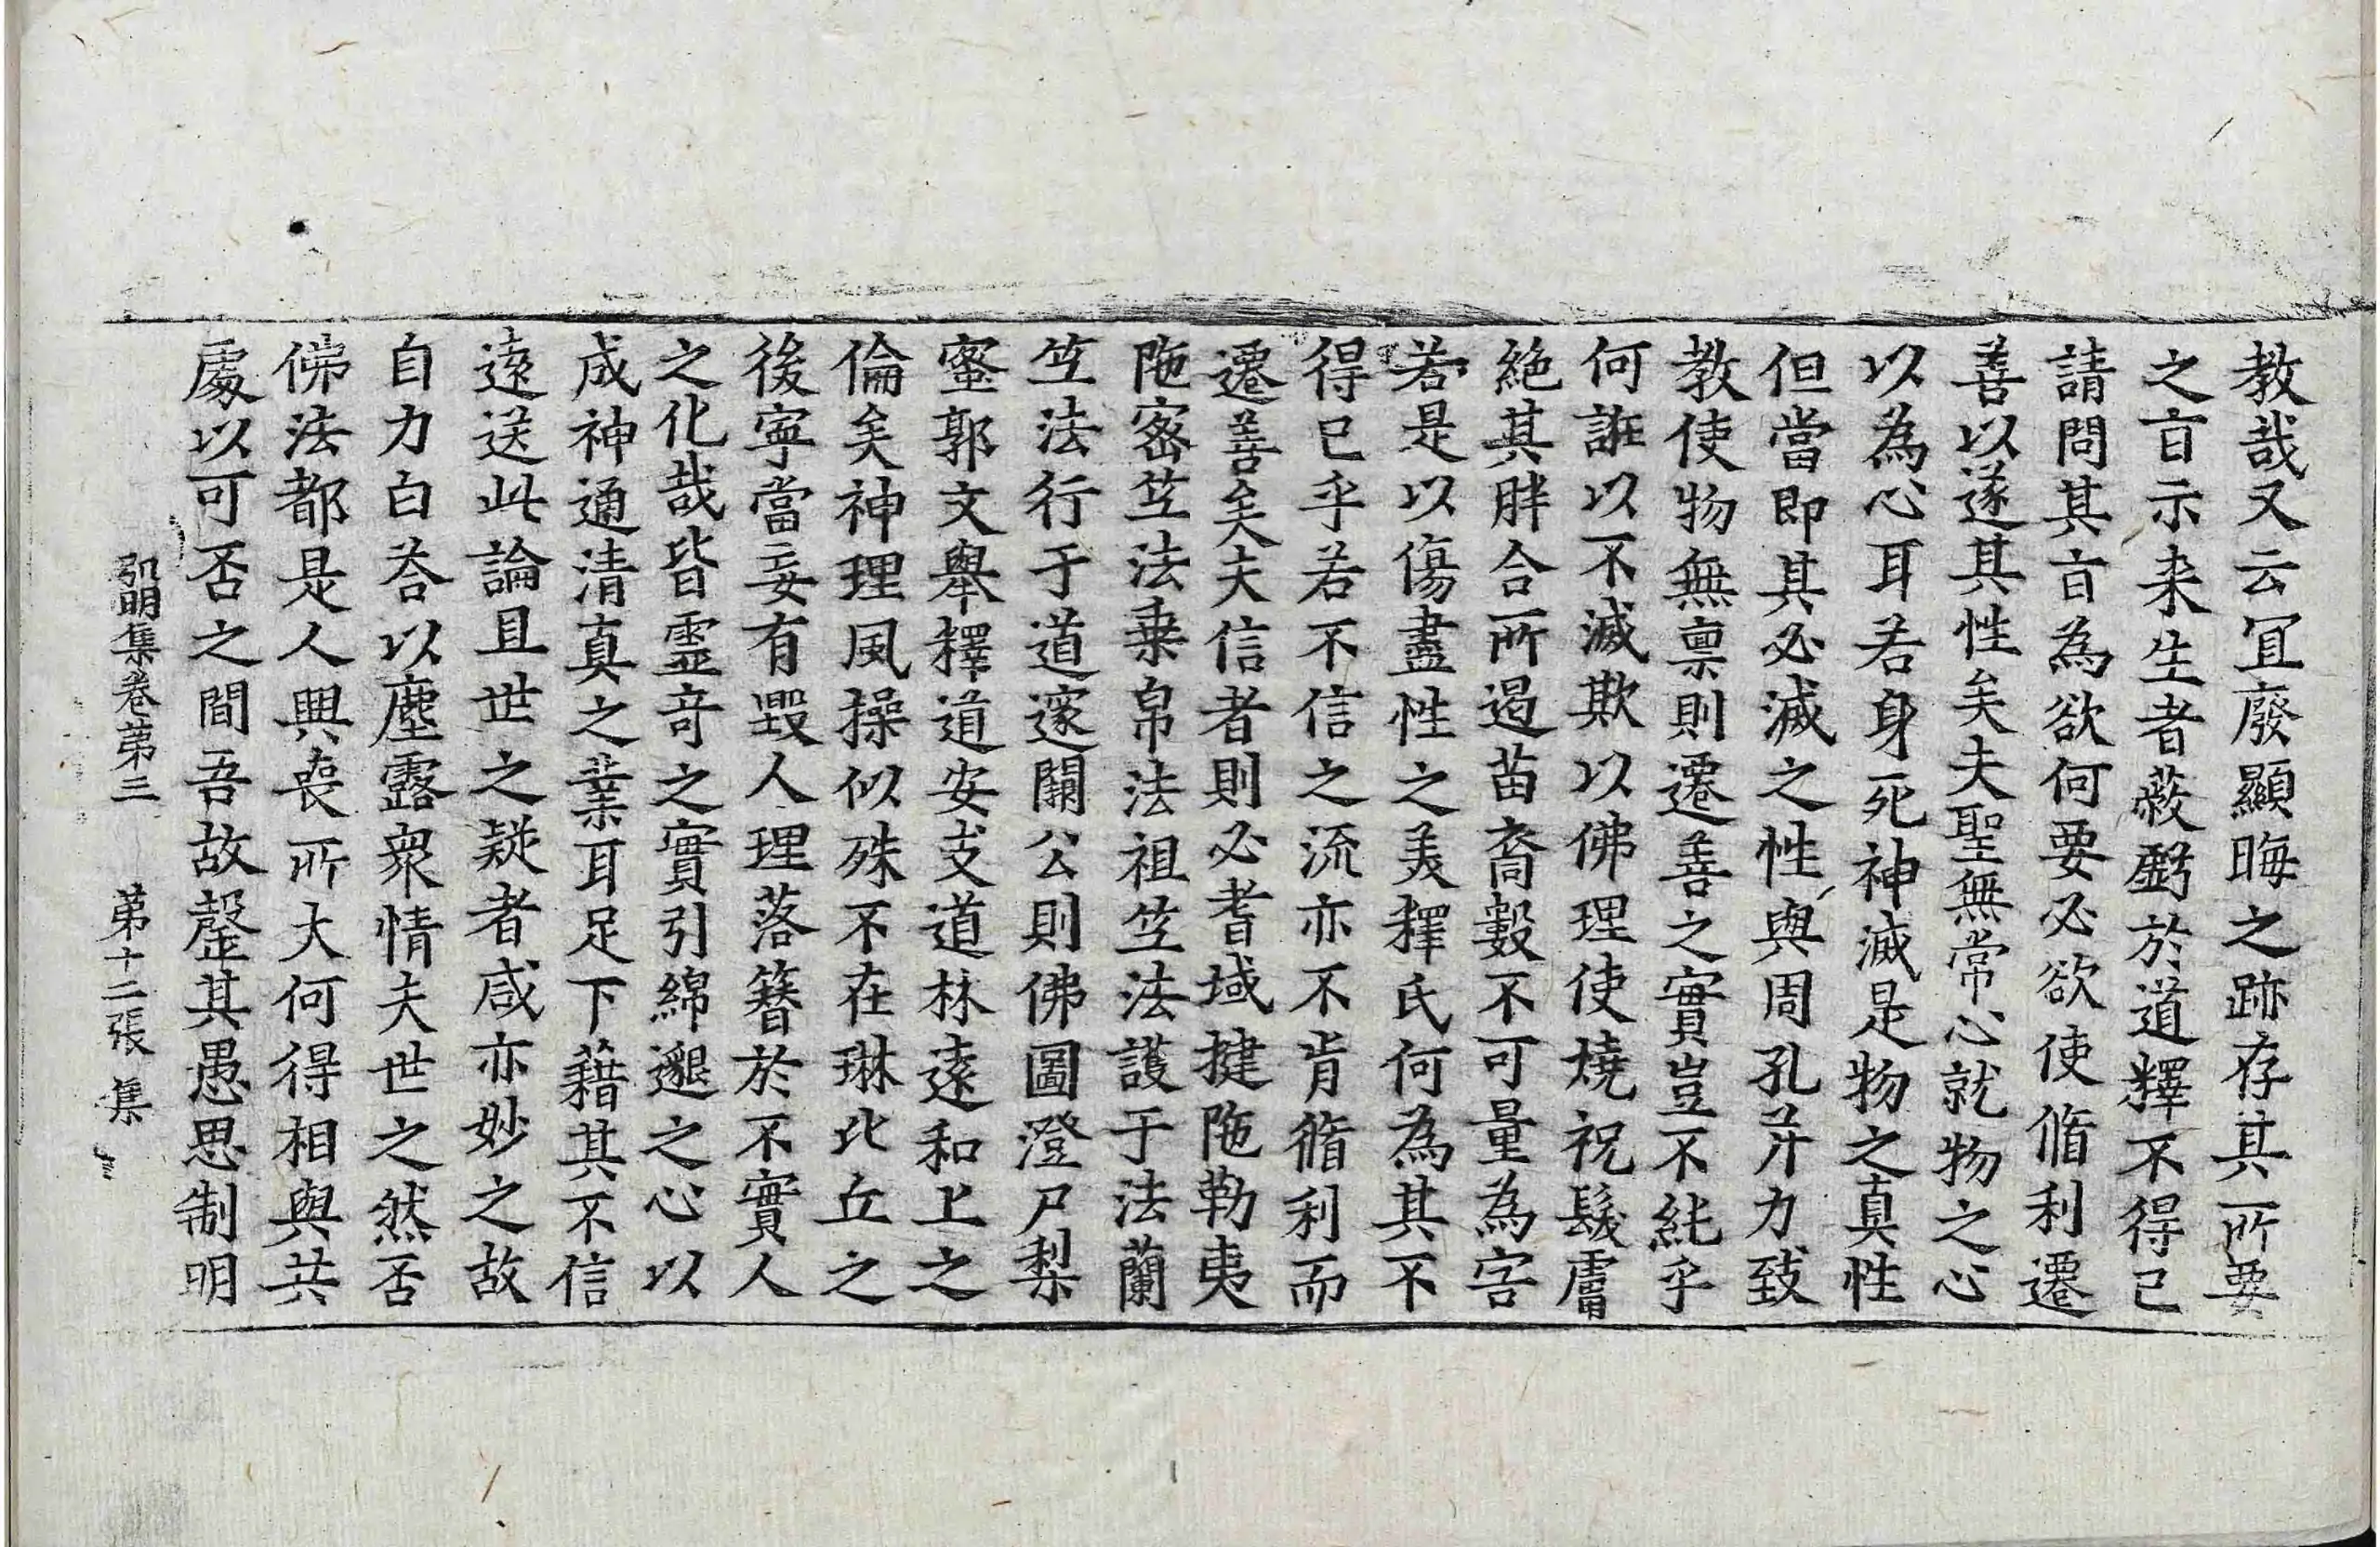 教哉又云冝廢顯晦之跡存其所要
之㫖示来生者蔽虧於道釋不得已
請問其㫖為欲何要必欲使脩利遷
善以遂其性矣夫聖無常心就物之心
以為心耳若身死神滅是物之真性
但當即其必滅之性與周孔并力致
教使物無禀則遷善之實豈不純乎
何誑以不滅欺以佛理使燒祝髮膚
絶其胖合所遏苗裔數不可量為害
若是以傷盡性之美釋氏何為其不
得已乎若不信之流亦不肯脩利而
遷善矣夫信者則必耆域揵陁勒夷
陁宻笁法乗帛法祖笁法護于法蘭
笁法行于道邃闕公則佛圖澄尸梨
蜜郭文舉釋道安支道林逺和上之
倫矣神理風操似殊不在琳比丘之
後寧當妄有毀人理落簪於不實人
之化哉皆靈竒之實引綿邈之心以
成神通清真之業耳足下藉其不信
逺送此論且世之疑者咸亦妙之故
自力白荅以塵露衆情夫世之然否
佛法都是人興喪所大何得相與共
處以可否之間吾故罄其愚思制明
弘明集卷第三　第十二張　集